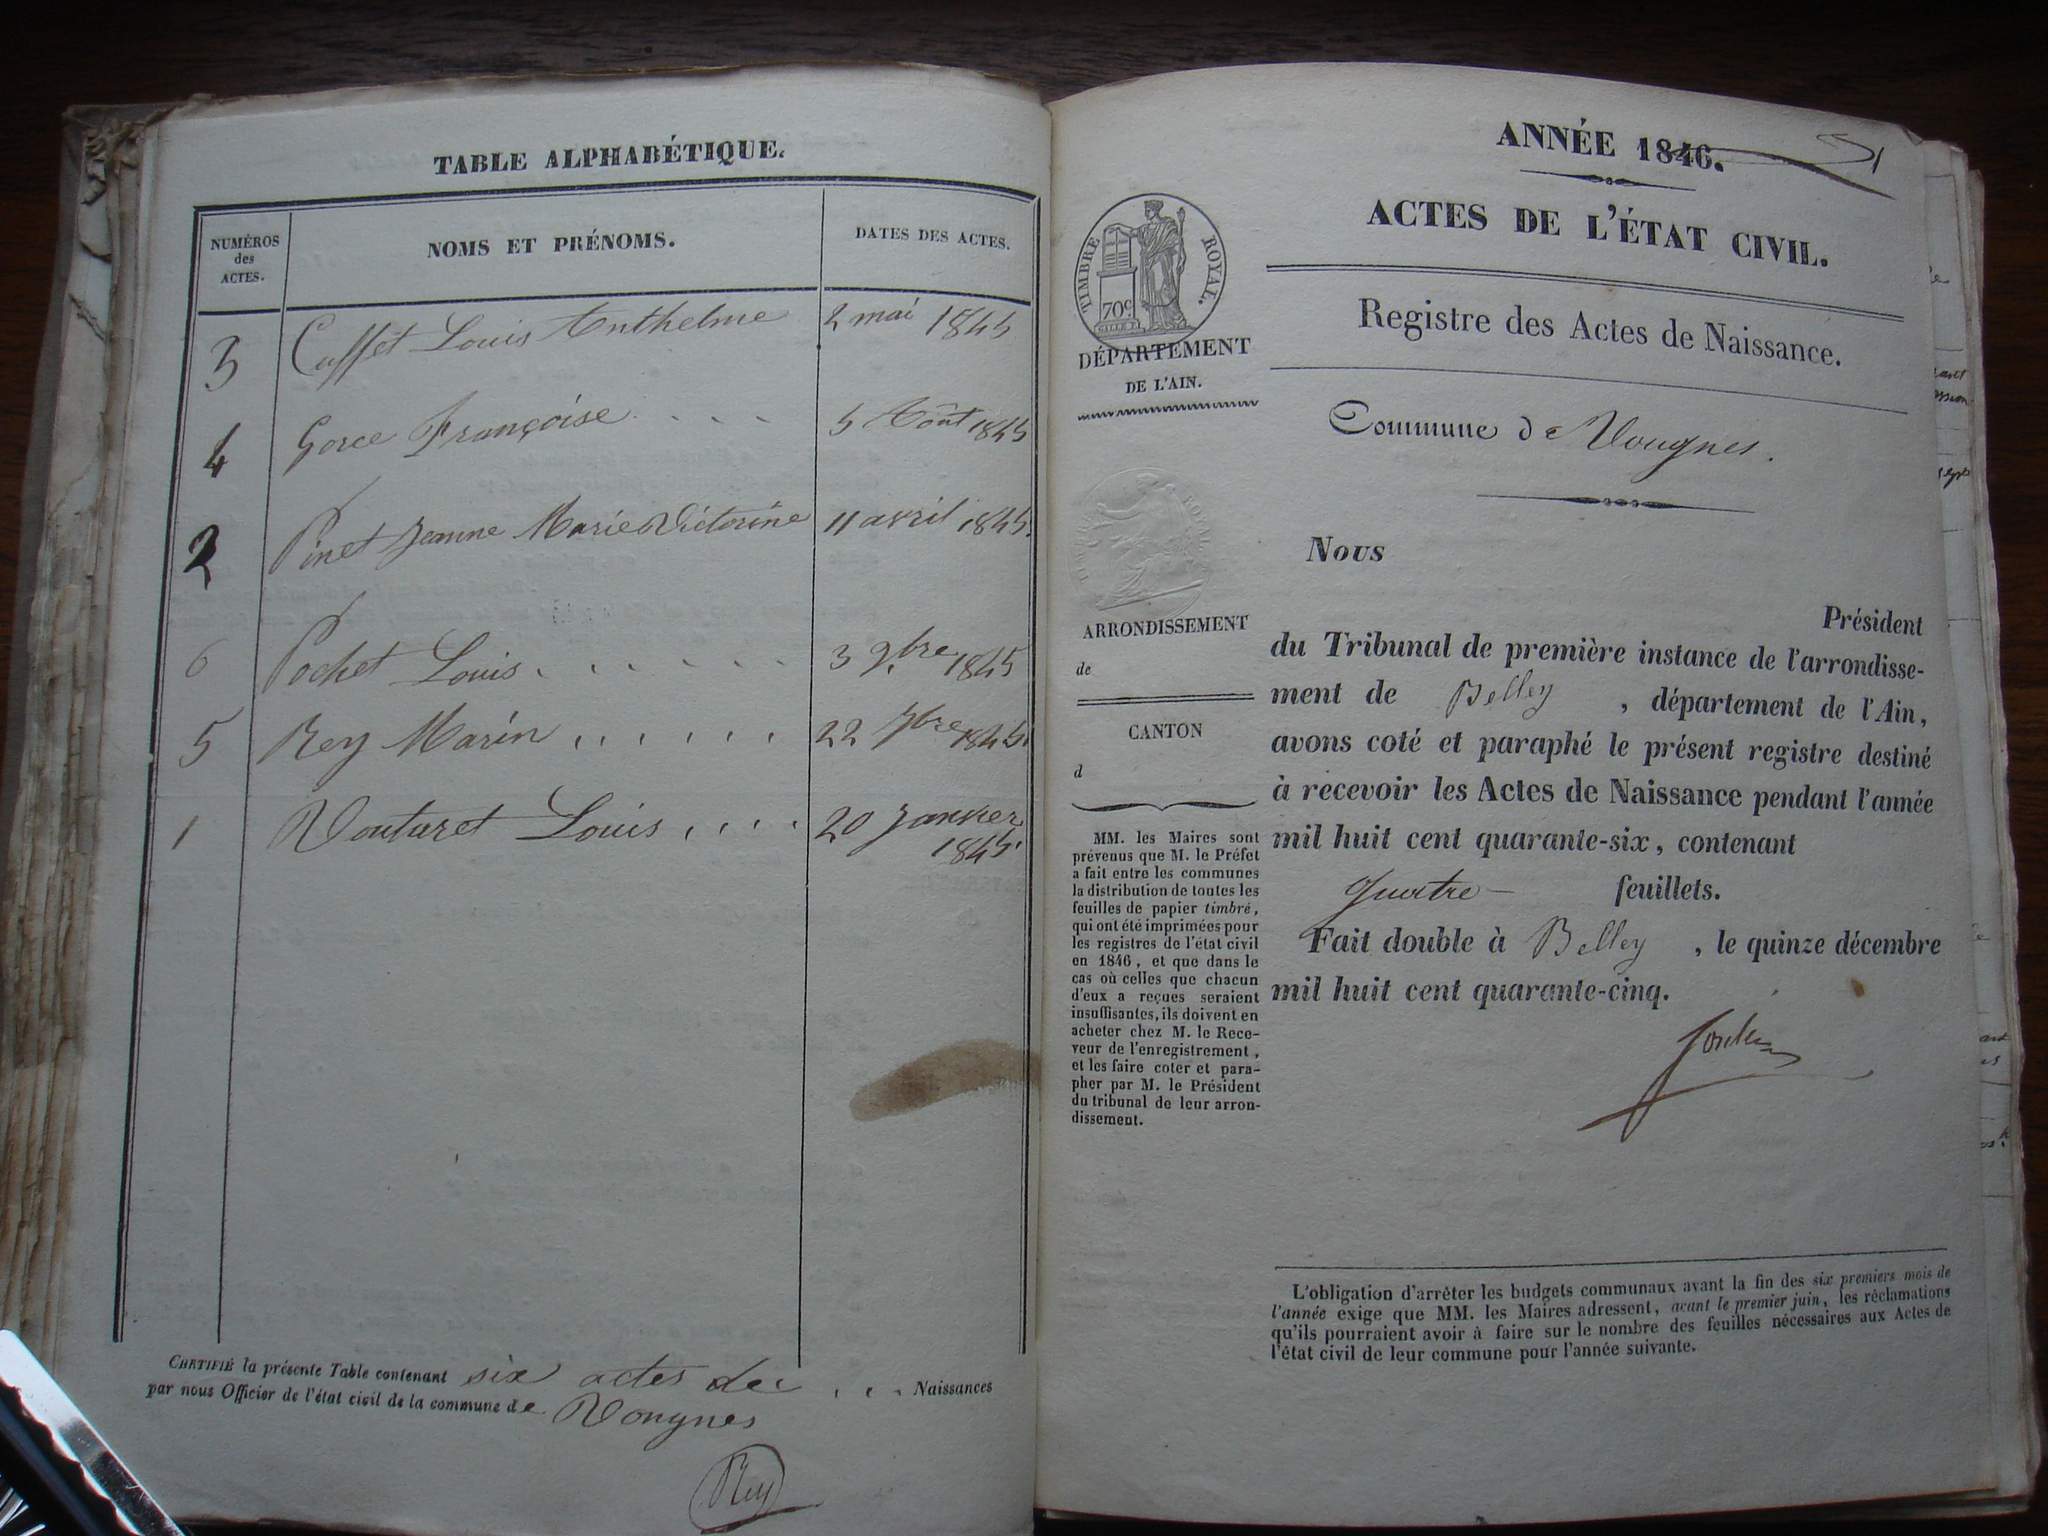 TABLE ALPHABÉTIQUE.
NUMÉROS
des
ACTES.
NOMS ET PRÉNOMS.
DATES DES ACTES.
3 Cuffet Louis Anthelme 2 mai 1845
4 Gorce Françoise . . . . 5 Août 1845
2 Pinet Jeanne Marie Victorine 11 avril 1845.
6 Pochet Louis . . . . . . 3 9.bre 1845
5 Rey Marin . . . . . . 22 7bre 1845.
1 Vouturet Louis . . . . 20 Janvier
1845.
CERTIFIÉ la présente Table contenant six actes de . . . Naissances
par nous Officier de l'état civil de la commune de Vongnes
Rey
ANNÉE 1846.
1
ACTES DE L'ÉTAT CIVIL.
Registre des Actes de Naissance.
Commune de Vougnes.
TIMBRE ROYAL.
70c
DÉPARTEMENT
DE L'AIN.
ARRONDISSEMENT
de
CANTON
d
MM. les Maires sont
prévenus que M. le Préfet
a fait entre les communes
la distribution de toutes les
feuilles de papier timbré,
qui ont été imprimées pour
les registres de l'état civil
en 1846, et que dans le
cas où celles que chacun
d'eux a reçues seraient
insuffisantes, ils doivent en
acheter chez M. le Rece-
veur de l'enregistrement,
et les faire coter et para-
pher par M. le Président
du tribunal de leur arron-
dissement.
Nous
Président
du Tribunal de première instance de l'arrondisse-
ment de Belley , département de l'Ain,
avons coté et paraphé le présent registre destiné
à recevoir les Actes de Naissance pendant l'année
mil huit cent quarante-six, contenant
quatre feuillets.
Fait double à Belley , le quinze décembre
mil huit cent quarante-cinq.
L'obligation d'arrêter les budgets communaux avant la fin des six premiers mois de
l'année exige que MM. les Maires adressent, avant le premier juin, les réclamations
qu'ils pourraient avoir à faire sur le nombre des feuilles nécessaires aux Actes de
l'état civil de leur commune pour l'année suivante.